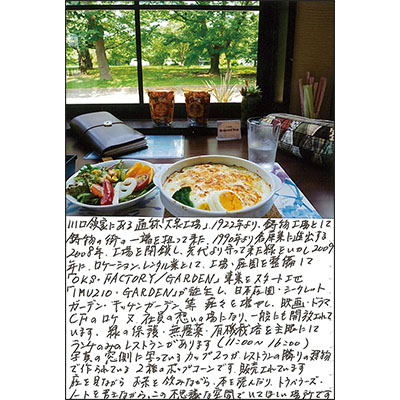 川口領家にある通称「大泉工場」1922年より、鋳物工場として
鋳物の街の一端を担って来た。1990年より 進出する
2008年、工場を閉鎖し、先代より守って来た緑をいかし2009
年に、ロケーション、レンタル業として、工場・庭園を整備して
"OKS・FACTORY/GARDEN" 事業をスタートさせ
「IMUZIO・GARDEN」が誕生し、日本庭園・シークレット
ガーデン・キッチンガーデン等 増やし、映画・ドラマ
CFのロケ 又 社員の憩いの場になり、一般にも開放されて
います。緑の保護・無農薬・有機栽培を主眼にして
ランチのみのレストランがあります(11:00~16:00)
写真の窓側に写っているカップ2つが、レストランの隣りの建物
で作られている 2種のポップコーンです。販売されています
庭を見ながら お茶を飲みながら、本を読んだり、トラベラーズ・
ノートを書きながら、この不思議な空間でいてほしい場所です